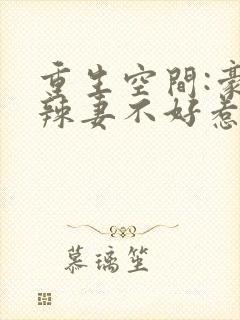 重生空間:豪
辣妻不好惹
慕璃笙